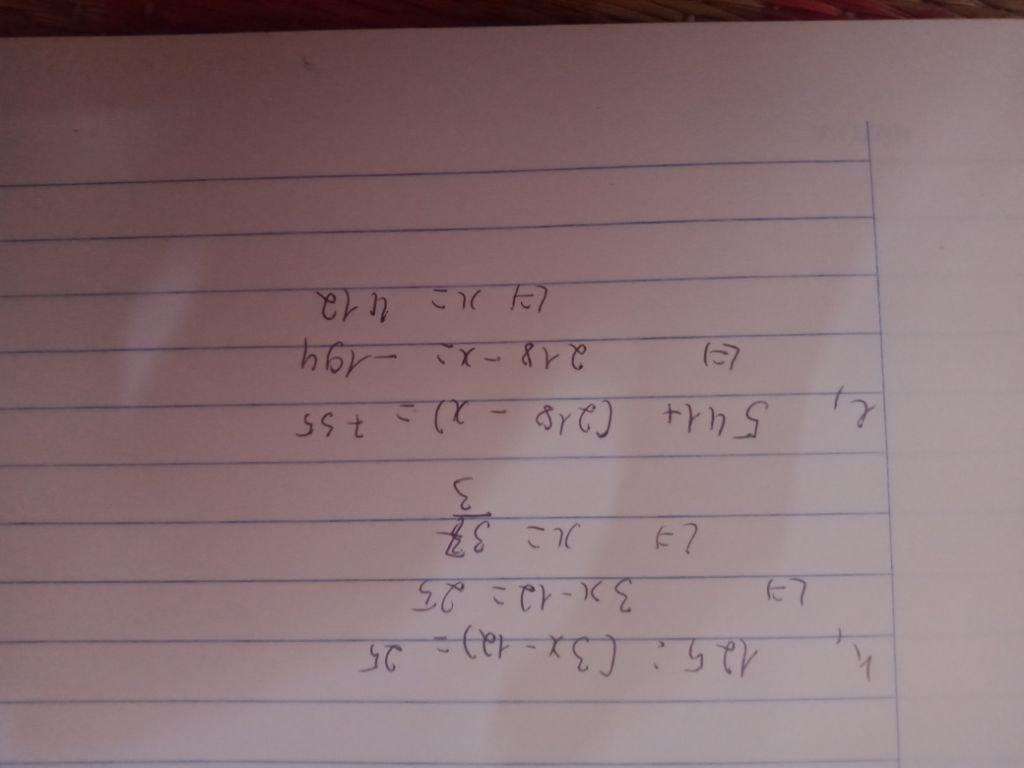 h, 125 : (3x - 12) = 25
<=> 3x - 12 = 25
<=> x = 37/3
l, 541 + (218 - x) = 735
<=> 218 - x = - 194
<=> x = 412